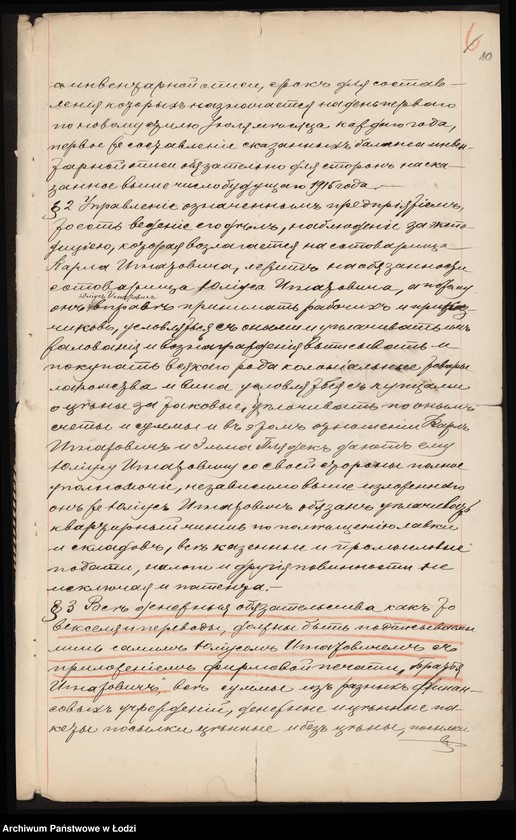 6
10
а инвентарной описи, срокъ для состав-
ленія которыхъ назначается на день перваго
по новому стилю Іюля мѣсяца каждаго года,
первое же составленіе сказанныхъ баланса и инвен-
тарной описи обязательно для сторонъ на ска-
занное выше число будущаго 1915 года.
§ 2 Управленіе означеннымъ предпріятіемъ,
то есть веденіе его дѣлъ, наблюденіе за
которая возлагается на сотоварища
Карла лежитъ на обязанности
сотоварища Юліуса а потому
Юліусъ
онъ вправѣ принимать рабочихъ и приказ-
чиковъ, условляться съ оными и уплачивать имъ
жалованія и вознагражденія выписывать и
покупать всякаго рода колоніальные товары
и вина условляться съ купцами
о цѣны за таковые, уплачивать по онымъ
счеты и суммы и въ этомъ отношеніи Карлъ
и даютъ ему
Юліусу со своей стороны полное
уполномочіе, независимо выше изложеннаго
онъ же Юліусъ обязанъ уплачивать
квартирный чиншъ по помѣщенію лавки
и складовъ, всѣ казенные и промысловые
подати, налоги и другія повинности не
исключая и патента.-
§ 3 Всѣ денежныя обязательства какъ то
векселя и переводы, должны быть подписываемы
лишь самимъ Юліусомъ съ
приложеніемъ фирмовой печати „Братья
всѣ суммы изъ разныхъ финан-
совыхъ учрежденій, денежные и цѣнные па-
кеты посылки цѣнные и безъ цѣны, посылки
Archiwum Państwowe w Łodzi